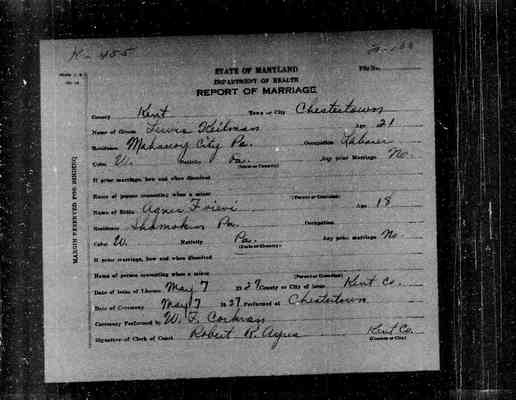 K-455
STATE OF MARYLAND
DEPARTMENT OF HEALTH
REPORT OF MARRIAGE
File No.
MARGIN RESERVED FOR BINDING
County Kent Town or City Chestertown
Name of Groom Lewis Heilman Age 21
Residence Mahanoy City Pa. Occupation Laborer
Color W. Pa. Any prior Marriage No.
(State or Country)
If prior marriage, how and when dissolved
Name of person consenting when a minor (Parent or Guardian)
Name of Bride Agnes Age 18
Residence Shamokin Pa. Occupation
Color W. Nativity Pa. Any prior marriage No
(State or Country)
If prior marriage, how and when dissolved
Name of person consenting when a minor (Parent or Guardian)
Date of issue of License May 7 1927 County or City of issue Kent Co.
Date of Ceremony May 7 1927 Performed at Chestertown
Ceremony Performed by W. F. Corkran
Signature of Clerk of Court Robert R. Kent Co.
(County or City)